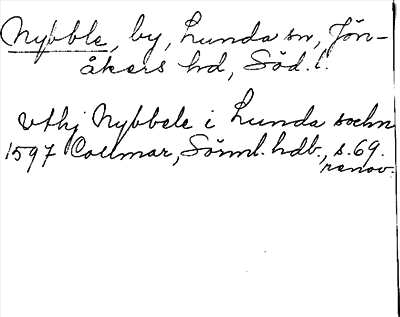 Nybble, by, Lunda sn, Jön-
åkers hd, Söd. l.
vthj Nybbele i Lunda sochn
1597 Collmar, Sörml. hdb., s. 69.
renov.